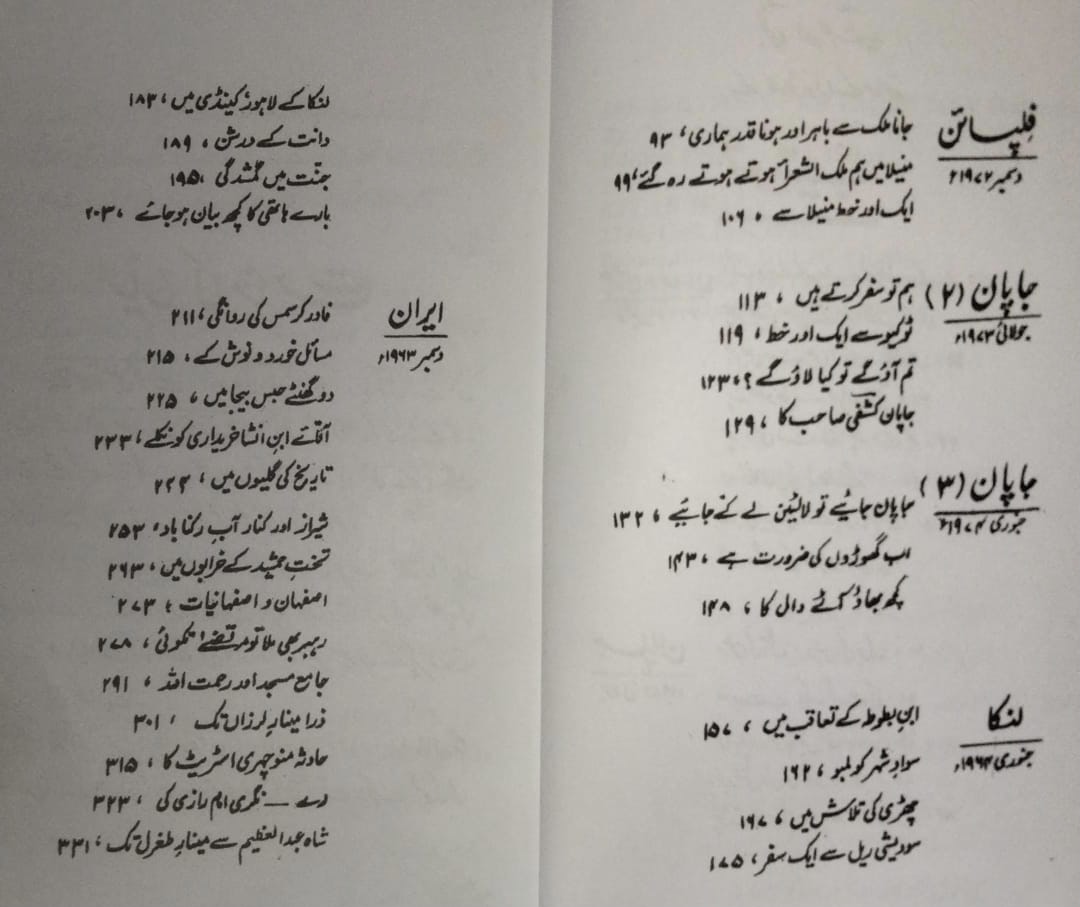 فلپائن
دسمبر ۱۹۷۲ء
جانا ملک سے باہر اور ہونا قدر ہماری، ۹۳
منیلا میں ہم ملک الشعرأ ہوتے ہوتے رہ گئے، ۹۹
ایک اور خط منیلا سے ، ۱۰۶
جاپان (۲)
جولائی ۱۹۷۳ء
ہم تو سفر کرتے ہیں ، ۱۱۳
ٹوکیو سے ایک اور خط ، ۱۱۹
تم آؤ گے تو کیا لاؤ گے ؟، ۱۲۳
جاپان کشفی صاحب کا ، ۱۲۹
جاپان (۳)
جنوری ۱۹۷۴ء
جاپان جائیے تو لالٹین لے کے جائیے ، ۱۳۲
اب گھوڑوں کی ضرورت ہے ، ۱۴۳
کچھ بھاؤ آٹے دال کا ، ۱۴۸
لنکا
جنوری ۱۹۶۴ء
ابنِ بطوطہ کے تعاقب میں ، ۱۵۷
سوادِ شہر کولمبو ، ۱۶۲
چھڑی کی تلاش میں ، ۱۶۷
سودیشی ریل سے ایک سفر، ۱۷۵
لنکا کے لاہور کینڈی میں ، ۱۸۳
دانت کے درشن ، ۱۸۹
جنّت میں گمشدگی ،۱۹۵
بارے ہاتھی کا کچھ بیان ہو جائے ،۲۰۳
ایران
دسمبر ۱۹۶۳ء
فادر کرسمس کی روانگی ،۲۱۱
مسائل خورد و نوش کے ، ۲۱۵
دو گھنٹے حبس بیجا میں ، ۲۲۵
آقائے ابنِ انشا خریداری کو نکلے ، ۲۳۳
تاریخ کی گلیوں میں ، ۲۴۴
شیراز اور کنار آبِ رکنا باد، ۲۵۳
تختِ جمشید کے خرابوں میں ، ۲۶۳
اصفہان و اصفہانیات ، ۲۷۳
رہبر بھی ملا تو مرتضےٰ اخموئی ، ۲۷۸
جامع مسجد اور رحمت اللہ ، ۲۹۱
ذرا مینارِ لرزاں تک ، ۳۰۱
حادثہ منوچہری اسٹریٹ کا ، ۳۱۵
رے — نگری امام رازی کی ، ۳۲۳
شاہ عبدالعظیم سے مینارِ طغرل تک ، ۳۳۱